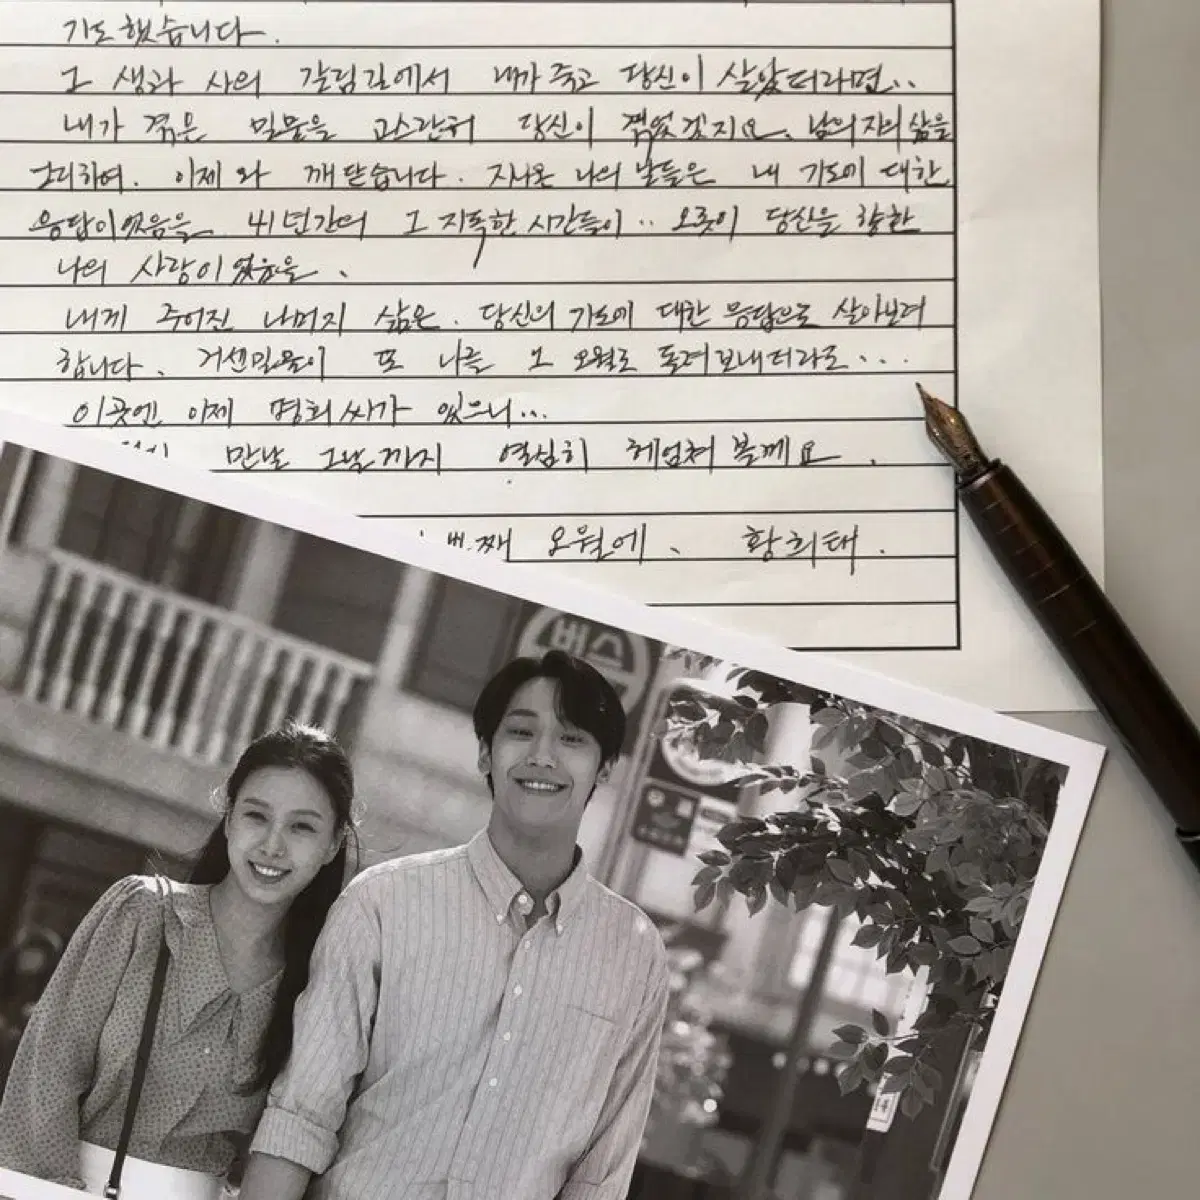 기도했습니다.
그 생과 사의 갈림길에서 내가 죽고 당신이 살았더라면..
내가 겪은 밀물을 고스란히 당신이 겪었겠지요. 남의 자의 삶을
하여. 이제 와 깨닫습니다. 지나온 나의 날들은 내 기도에 대한
응답이었음을. 41년간의 그 지독한 시간들이.. 오롯이 당신을 향한
나의 사랑이었음을.
내게 주어진 나머지 삶은. 당신의 기도에 대한 응답으로 살아보려
합니다. 거센 밀물이 또 나를 그 오월로 돌려보내더라도...
이곳엔 이제 명희씨가 있으니...
만날 그날까지 열심히 헤엄쳐볼게요.
번째 오월에. 황희태.
버스